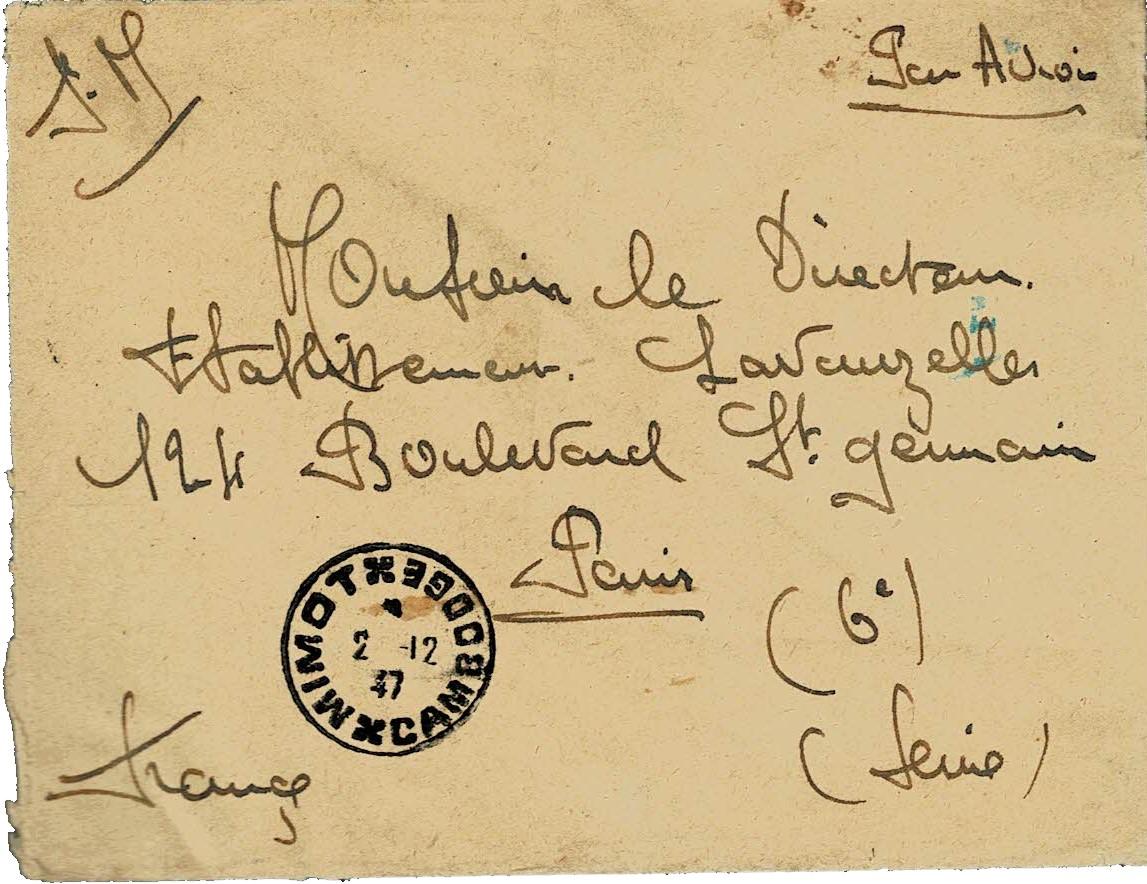 F.M
Par Avion
Monsieur le Directeur.
Etablissements. Lavauzelles
124 Boulevard St. germain
Paris
(6e)
(Seine)
France
MIMOT * CAMBODGE *
2 -12
47